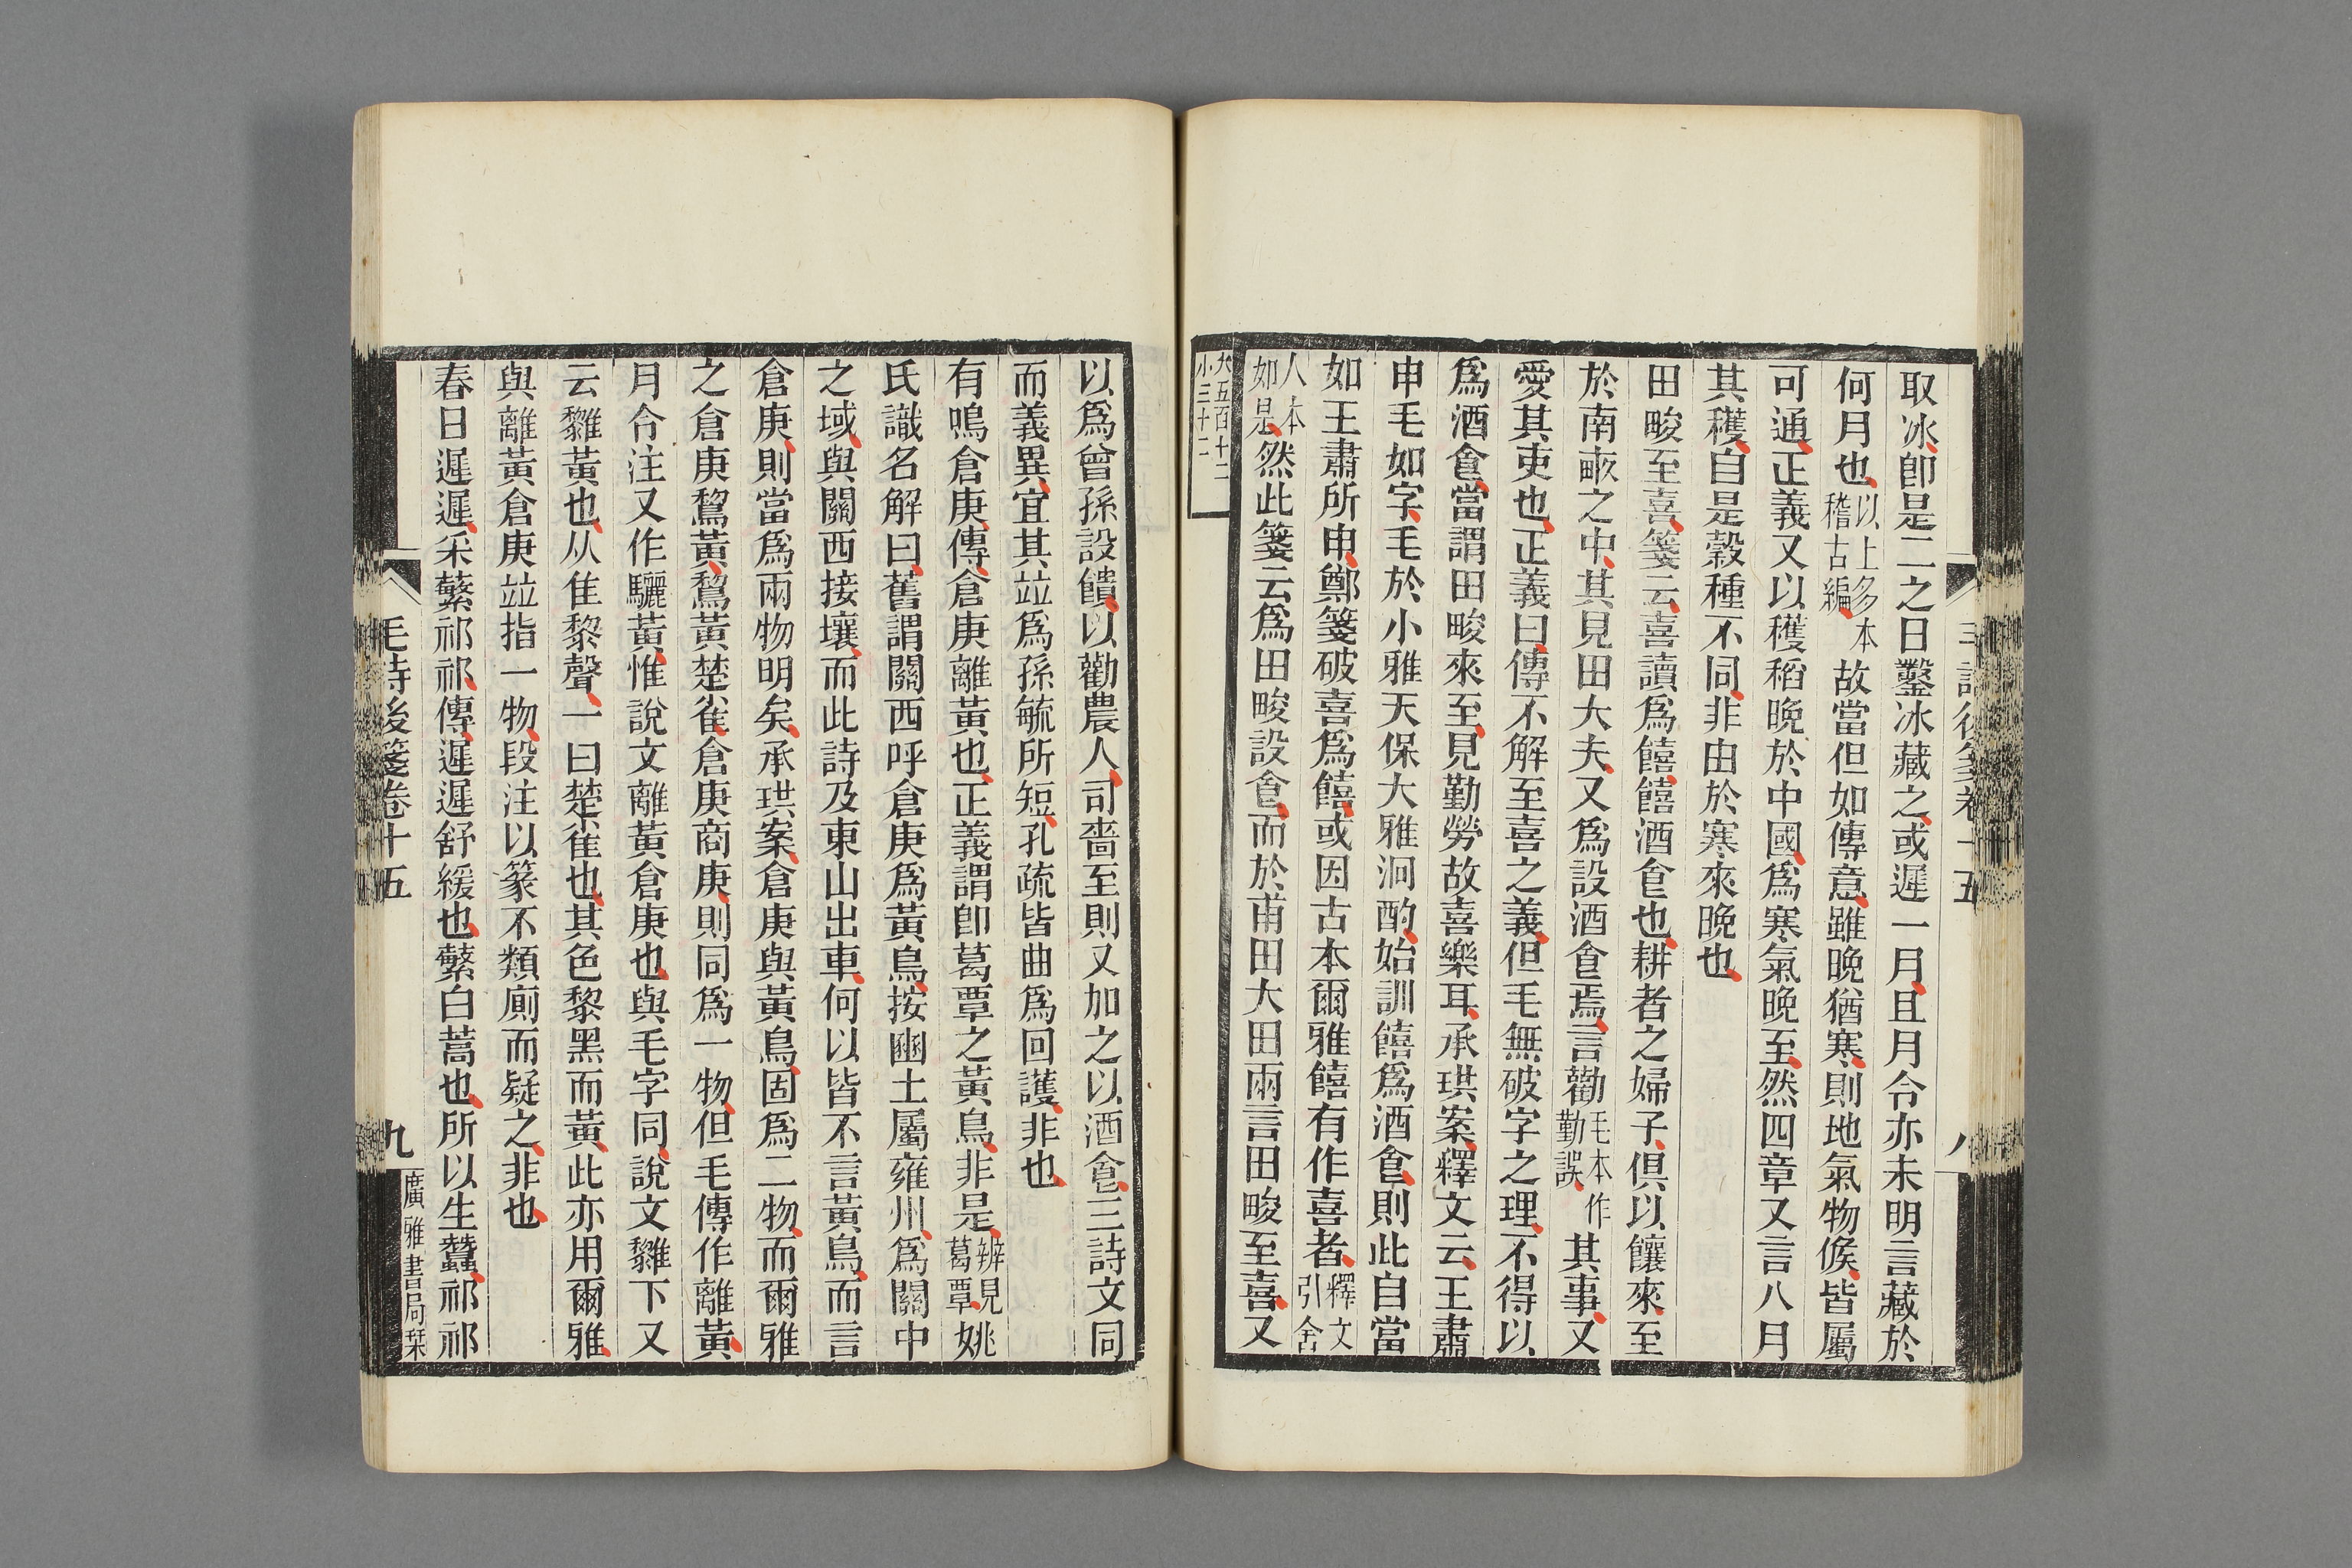 取冰卽是二之日鑿冰藏之或遲一月且月令亦未明言藏於
何月也以上多本稽古編故當但如傳意雖晚猶寒則地氣物候皆屬
可通正義又以穫稻晚於中國爲寒氣晚至然四章又言八月
其穫自是穀種不同非由於寒來晚也
田畯至喜箋云喜讀爲饎饎酒食也耕者之婦子俱以饟來至
於南畝之中其見田大夫又爲設酒食焉言勸毛本作勤誤其事又
愛其吏也正義曰傳不解至喜之義但毛無破字之理不得以
爲酒食當謂田畯來至見勤勞故喜樂耳承珙案釋文云王肅
申毛如字毛於小雅天保大雅泂酌始訓饎爲酒食則此自當
如王肅所申鄭箋破喜爲饎或因古本爾雅饎有作喜者釋文引舍
人本如是然此箋云爲田畯設食而於甫田大田兩言田畯至喜又
大五百十二
小三十二
毛詩後箋卷十五
八
以爲曾孫設饋以勸農人司嗇至則又加之以酒食三詩文同
而義異宜其竝爲孫毓所短孔疏皆曲爲回護非也
有鳴倉庚傳倉庚離黃也正義謂卽葛覃之黃鳥非是辨見葛覃姚
氏識名解曰舊謂關西呼倉庚爲黃鳥按豳土屬雍州爲關中
之域與關西接壤而此詩及東山出車何以皆不言黃鳥而言
倉庚則當爲兩物明矣承珙案倉庚與黃鳥固爲二物而爾雅
之倉庚鵹黃鵹黃楚雀倉庚商庚則同爲一物但毛傳作離黃
月令注又作驪黃惟說文離黃倉庚也與毛字同說文雡下又
云雡黃也从隹黎聲一曰楚雀也其色黎黑而黃此亦用爾雅
與離黃倉庚竝指一物段注以篆不類廁而疑之非也
春日遲遲采蘩祁祁傳遲遲舒緩也蘩白蒿也所以生蠶祁祁
毛詩後箋卷十五
九
廣雅書局栞